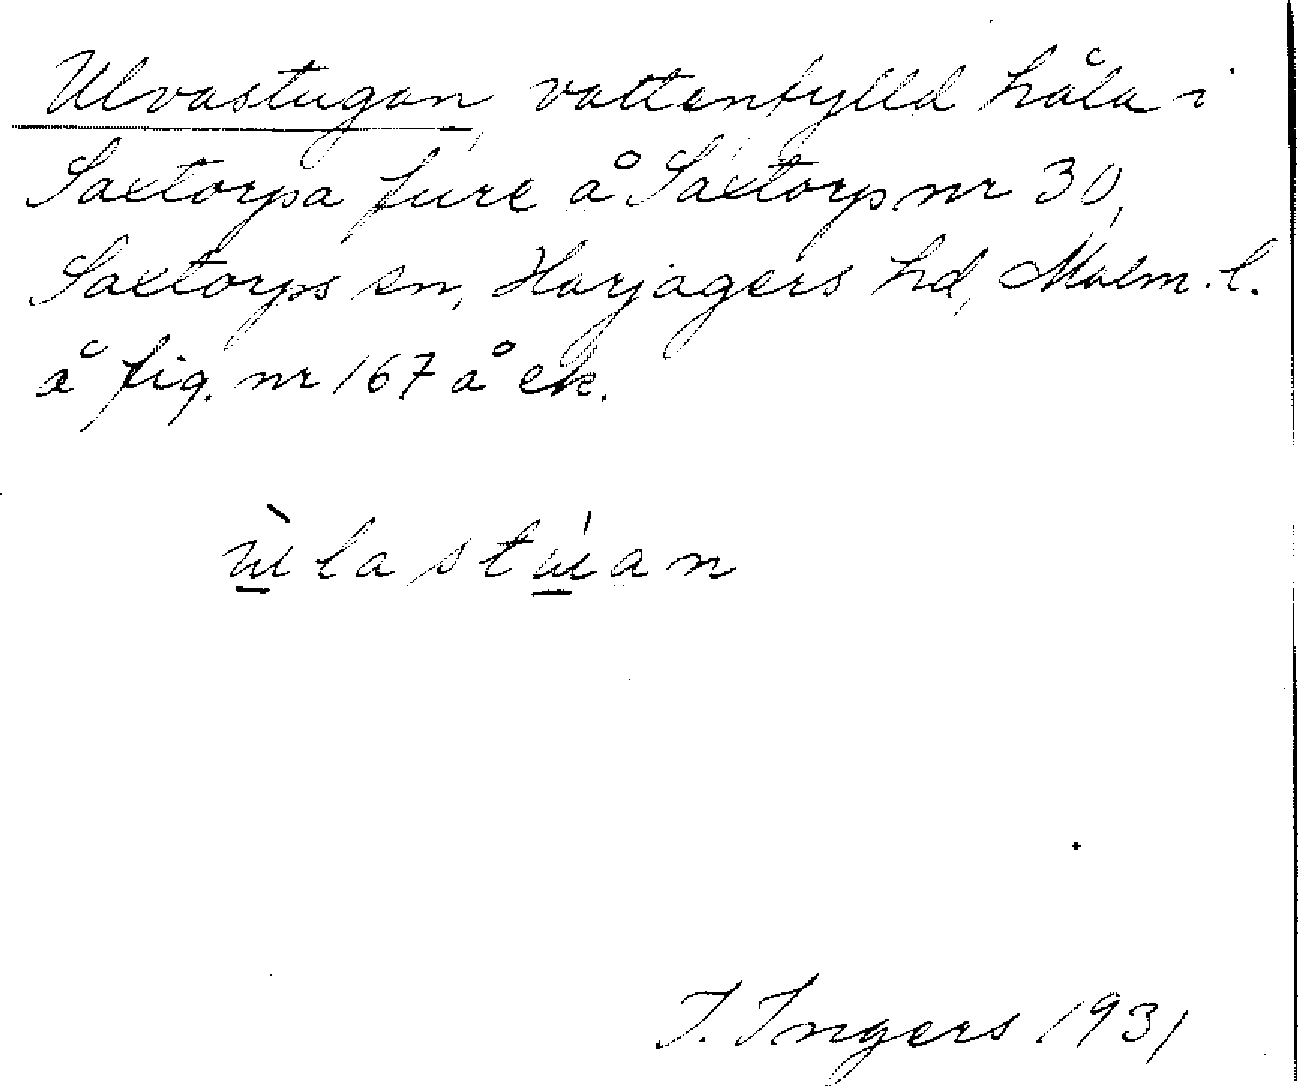 Ulvastugan, vattenfylld håla i
Saxtorpa fure å Saxtorp nr 30,
Saxtorps sn, Harjagers hd, Malm. l.
å fig. nr 167 å ek.
ùlastúan
I. Ingers 1931